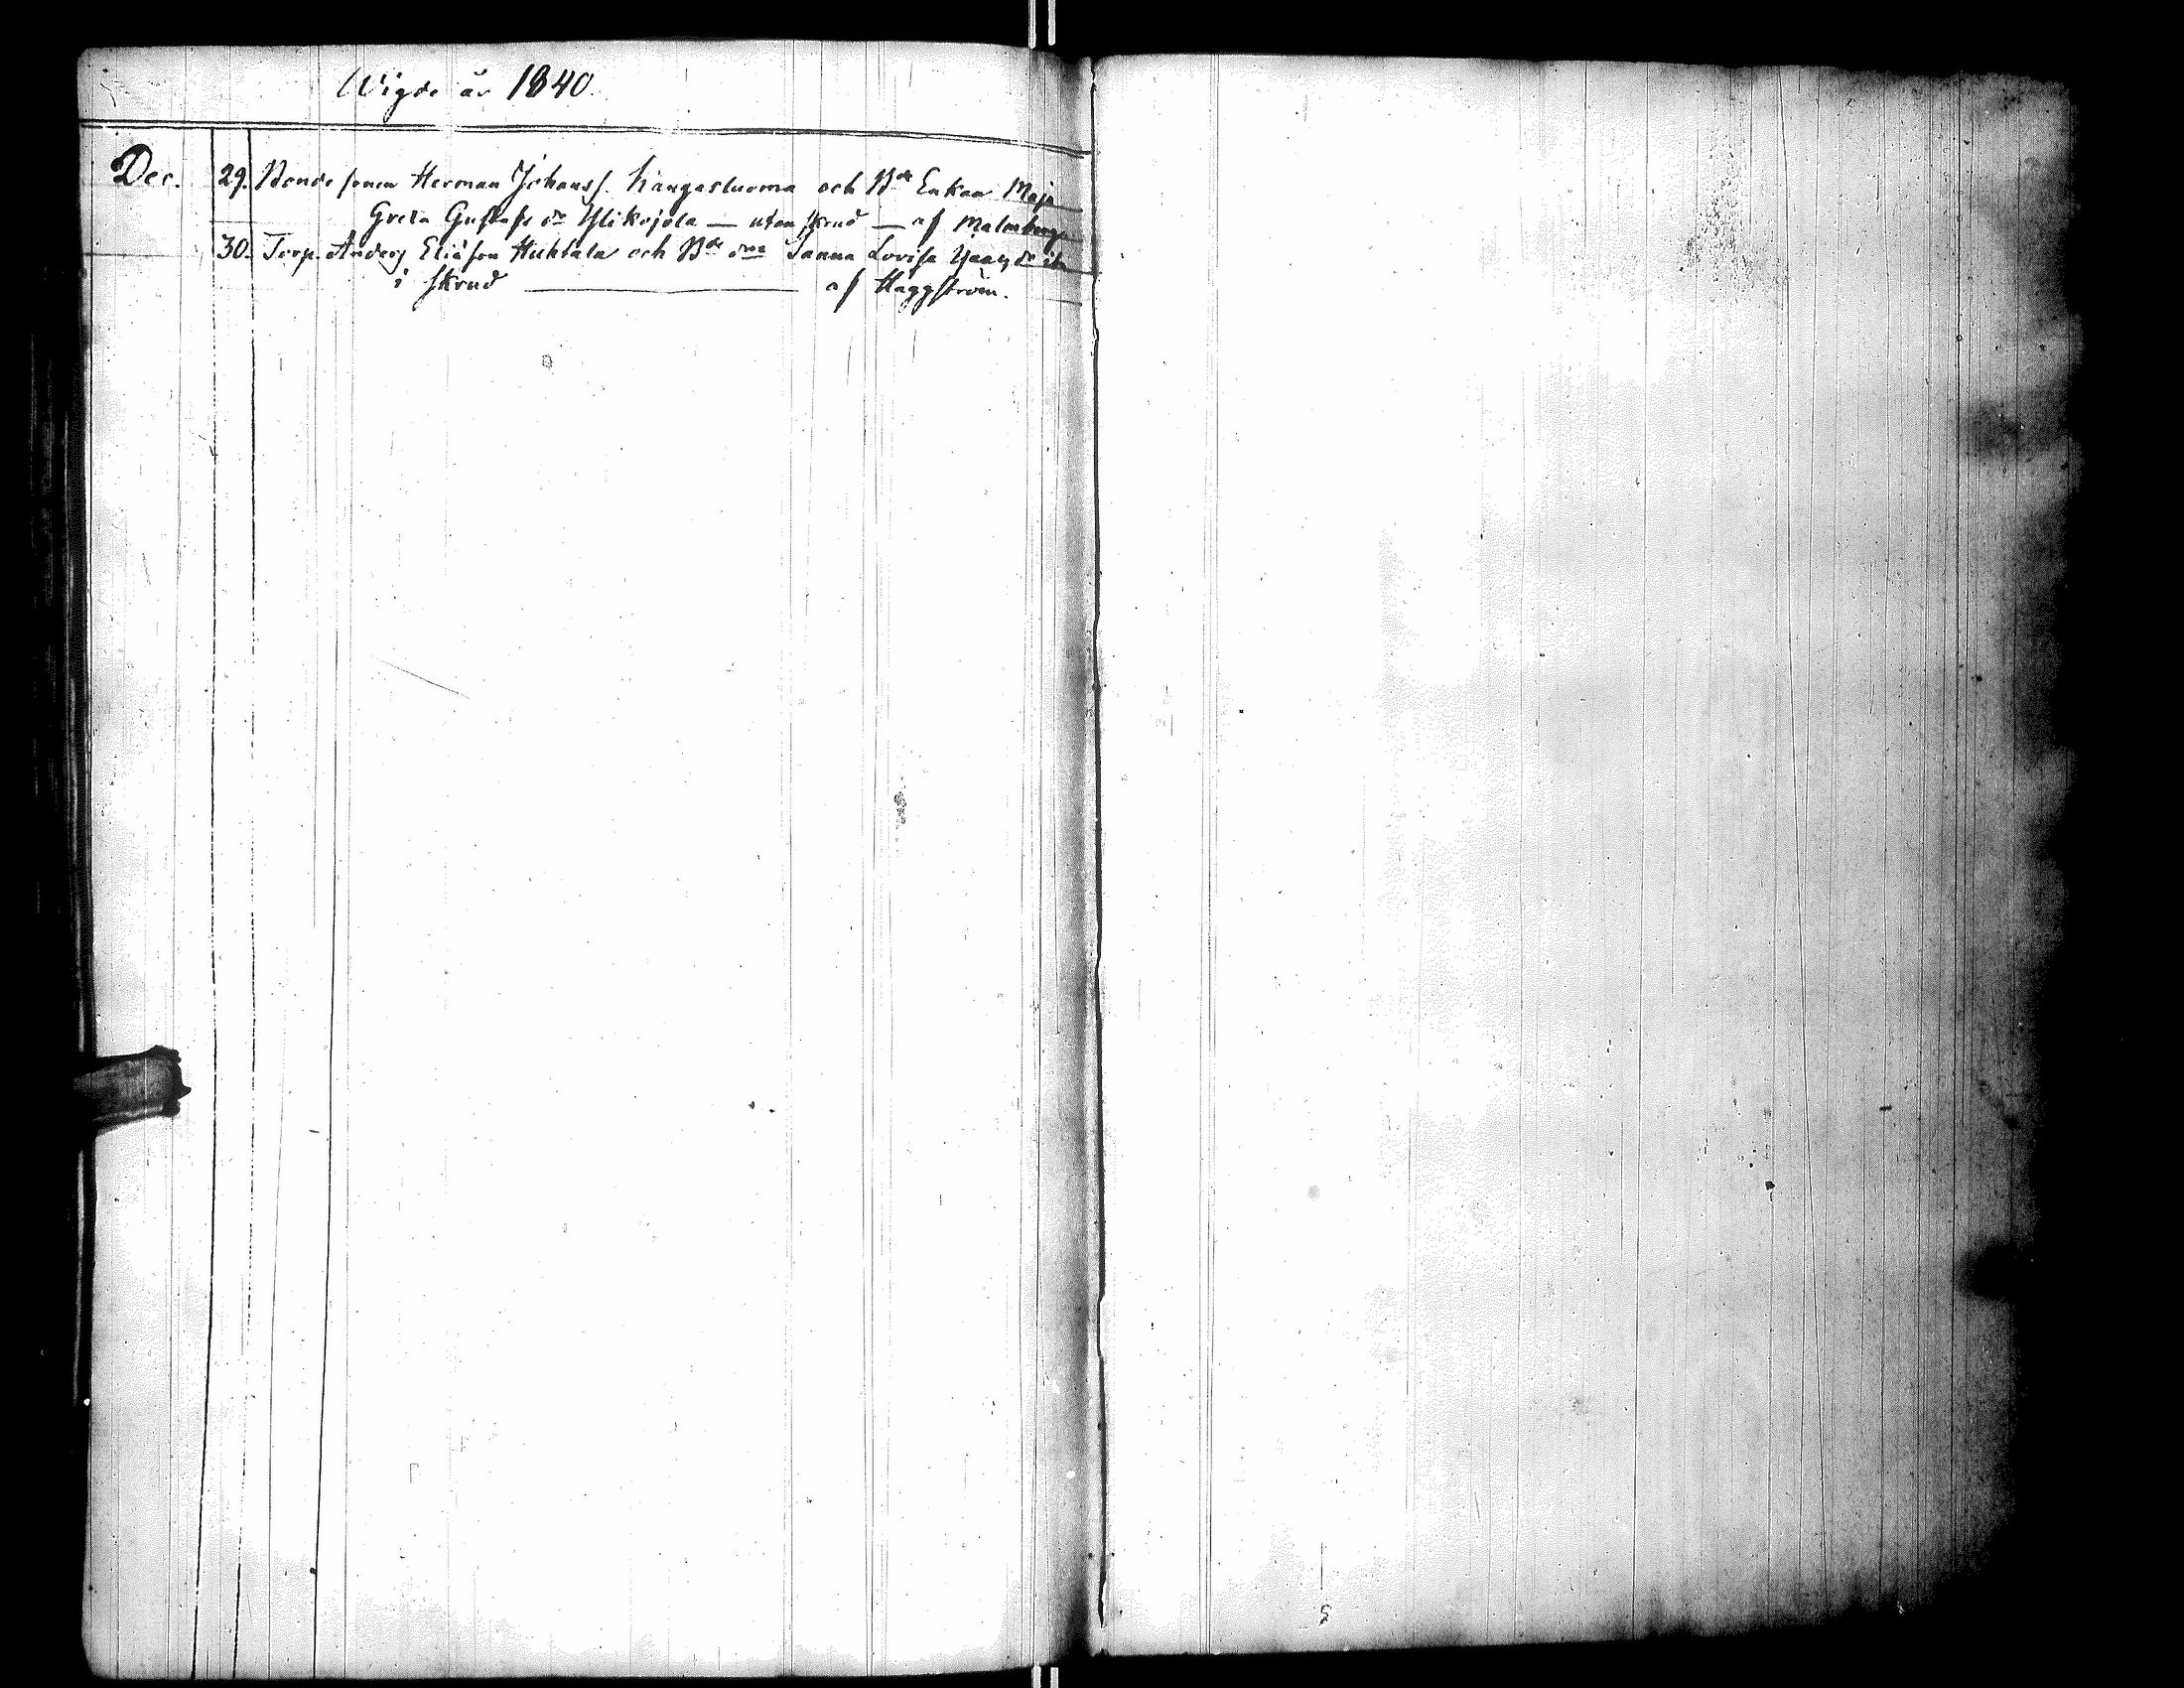 Wigde år 1840.
Dec. 29. Bonde sonen Herman Johanss. Kangasluoma och Bde Enkan Maja
Greta Gustafs dr Ylikojola — utan skrud — af Malmberg
30. Torp. Anders Eliason Huhtala och Bde dren Sanna Lovisa
i skrud — af Häggström.